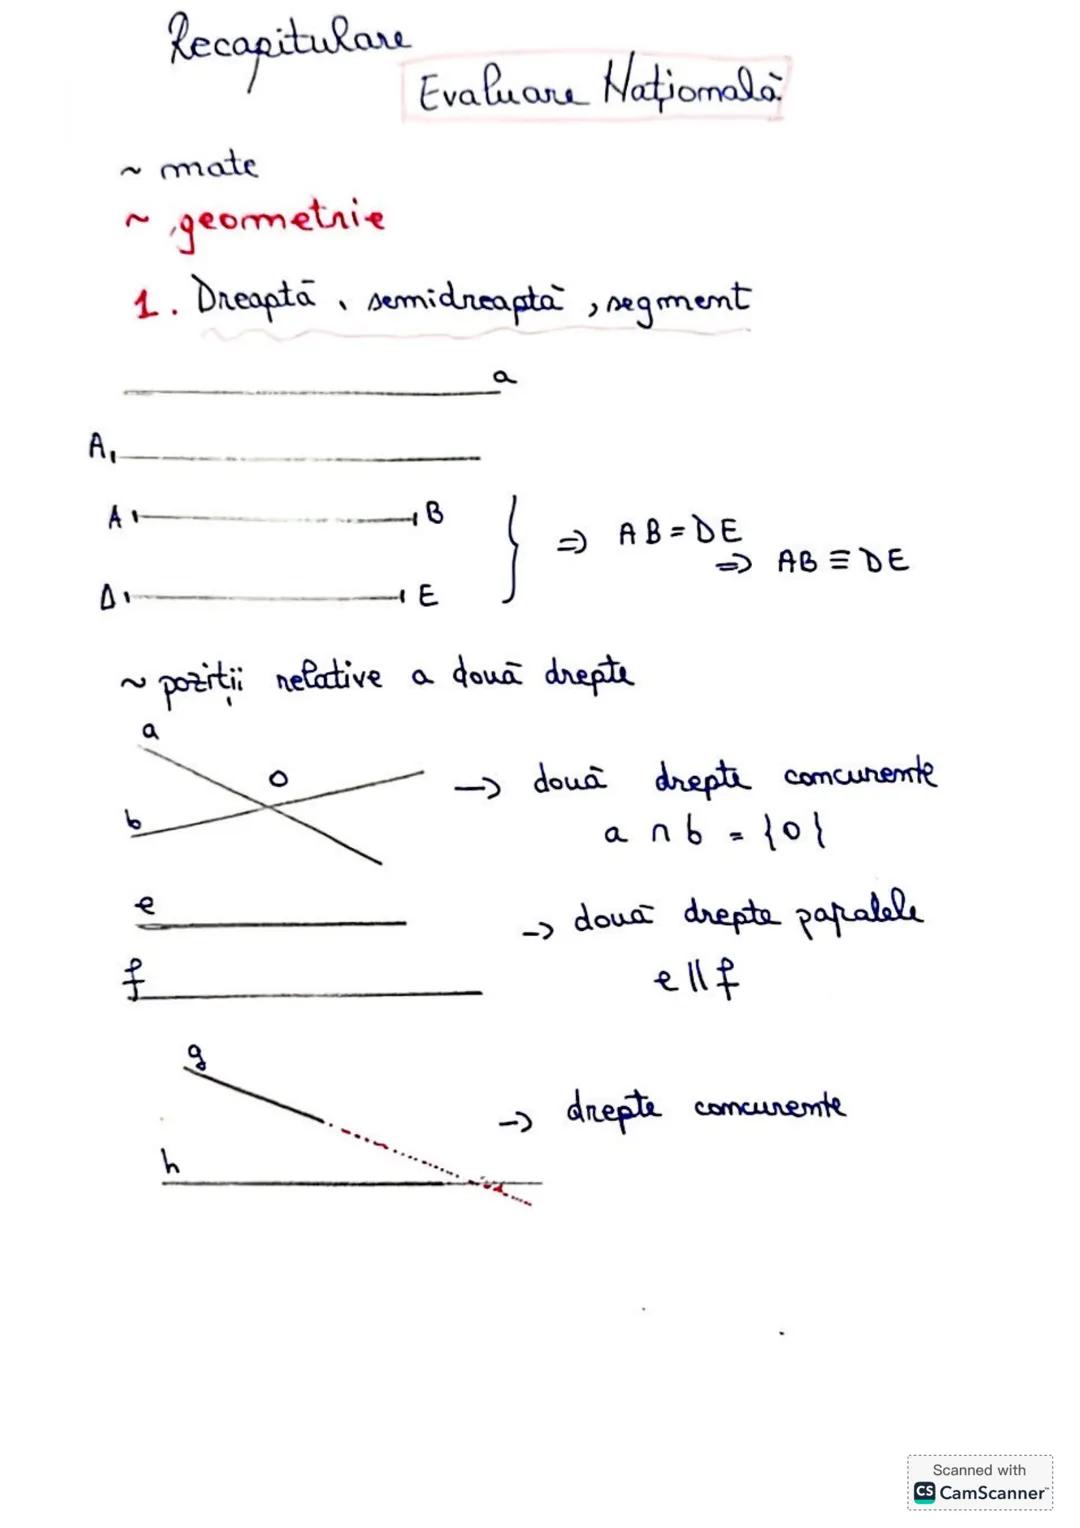 Recapitulare
Evaluare Națională
~ mate
~ geometrie
1. Dreaptă, semidreaptă, segment
a
A
A B
⇒ AB = DE
⇒ AB ≡ DE
D E
~ poziții relative a două drepte
a
O
b
→ două drepte concurente
a ∩ b = {O}
e
→ două drepte paralele
f
e || f
g
→ drepte concurente
h
Scanned with
CS CamScanner